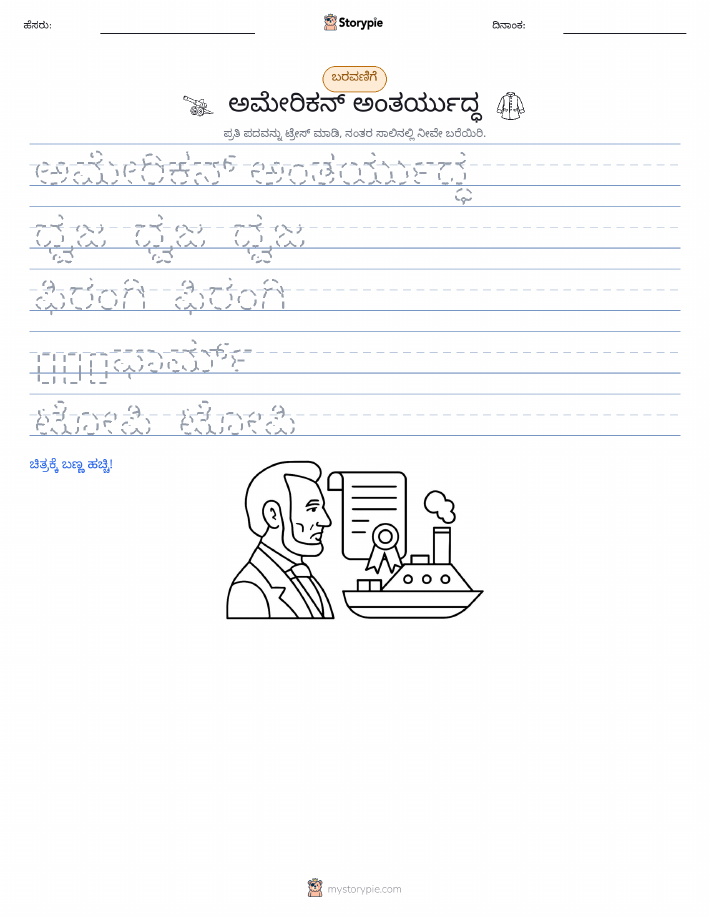 ಹೆಸರು:
Storypie
ದಿನಾಂಕ:
ಬರವಣಿಗೆ
ಅಮೇರಿಕನ್ ಅಂತರ್ಯುದ್ಧ
ಪ್ರತಿ ಪದವನ್ನು ಟ್ರೇಸ್ ಮಾಡಿ, ನಂತರ ಸಾಲಿನಲ್ಲಿ ನೀವೇ ಬರೆಯಿರಿ.
ಅಮೇರಿಕನ್ ಅಂತರ್ಯುದ್ಧ
ಧ್ವಜ ಧ್ವಜ ಧ್ವಜ
ಫಿರಂಗಿ ಫಿರಂಗಿ
ಫಾರ್ಮ್
ಟೋಪಿ ಟೋಪಿ
ಚಿತ್ರಕ್ಕೆ ಬಣ್ಣ ಹಚ್ಚಿ!
mystorypie.com